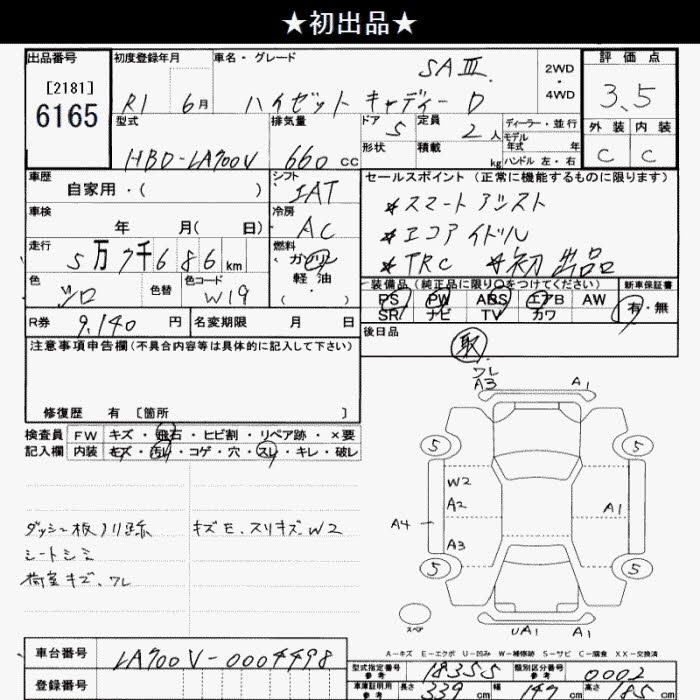 ★初出品★
出品番号 初度登録年月 車名・グレード 評価点
[2181] 6165
R1 6月 ハイゼット キャディー D SAⅢ 2WD・4WD 3.5
型式 排気量 ドア 定員 ディーラー・並行 外装 内装
HBD-LA700V 660cc 5 2人 モデル年式 年 C C
形状 積載 kg ハンドル 左・右
車歴 シフト セールスポイント(正常に機能するものに限ります)
自家用・( ) IAT
＊スマートアシスト
車検 冷房
年 月( 日) AC
＊エコアイドル
走行 燃料
5万7千686km ガソリン 軽油 ・( )
＊TRC ＊初出品
色 色替 色コード 装備品(純正品に限り○をつけてください) 新車保証書
シロ W19 PS PW ABS エアB AW 有・無
SR ナビ TV カワ
R券 9,140円 名変期限 月 日 後日品
取
注意事項申告欄(不具合内容等は具体的に記入して下さい)
修復歴 有 [箇所 ]
検査員 FW キズ・飛石・ヒビ割・リペア跡・×要
記入欄 内装 キズ・汚レ・コゲ・穴・スレ・キレ・破レ
ワレ
A3 A1
5 5
W2
A2 A1
A4
A3
5 5
スペア
UA1 A1
ダッシュ板ノリ跡 キズE、スリキズ、W2
シートシミ
荷室キズ、ワレ
A-キズ E-エクボ U-凹み W-補修跡 S-サビ C-腐食 XX-交換済
車台番号 LA700V-0004498
型式指定番号 参考 18355 類別区分番号 参考 0002
登録番号
車庫証明用 参考 長さ 339cm 幅 147cm 高さ cm